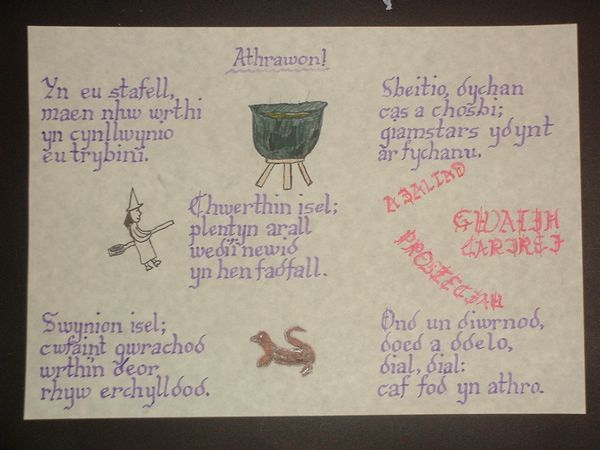 Athrawon!
Yn eu stafell,
maen nhw wrthi
yn cynllwynio
eu trybini.
Sbeitio, dychan
cas a chosbi;
giamstars ydynt
ar fychanu.
Chwerthin isel;
plentyn arall
wedi'i newid
yn hen fadfall.
Swynion isel;
cwfaint gwrachod
wrthi'n deor
rhyw erchylldod.
Ond un diwrnod,
doed a ddelo,
dial, dial:
caf fod yn athro.
GWAITH